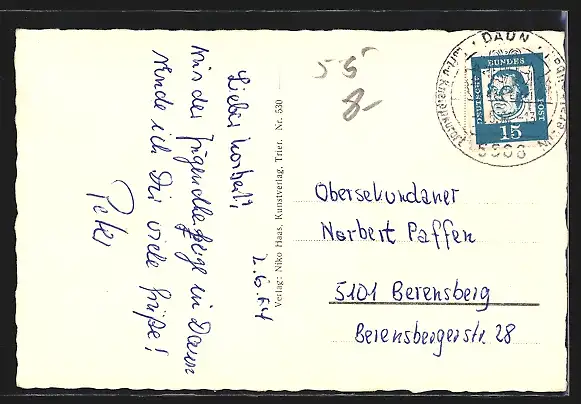 2.6.64
Lieber Norbert,
Aus der Jugendherberge in Daun
sende ich Dir viele Grüße!
Peter
Verlag: Niko Haas, Kunstverlag, Trier. Nr. 530
55
8-
DAUN
5568
DEUTSCHE
BUNDES
POST
15
Obersekundaner
Norbert Paffen
5101 Berensberg
Berensbergerstr. 28